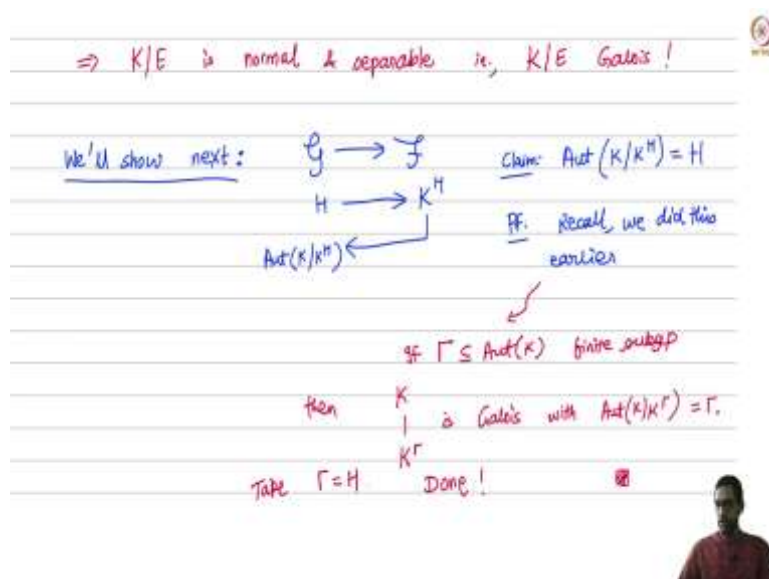 ⇒ K/E is normal & separable ie., K/E Galois !
We'll show next : 𝒢 ⟶ ℱ Claim: Aut (K/K^H) = H
H ⟶ K^H Pf. Recall, we did this
Aut(K/K^H) ⟵ earlier
If Γ ≤ Aut(K) finite subgp
then K | K^Γ is Galois with Aut(K/K^Γ) = Γ.
Take Γ = H Done !